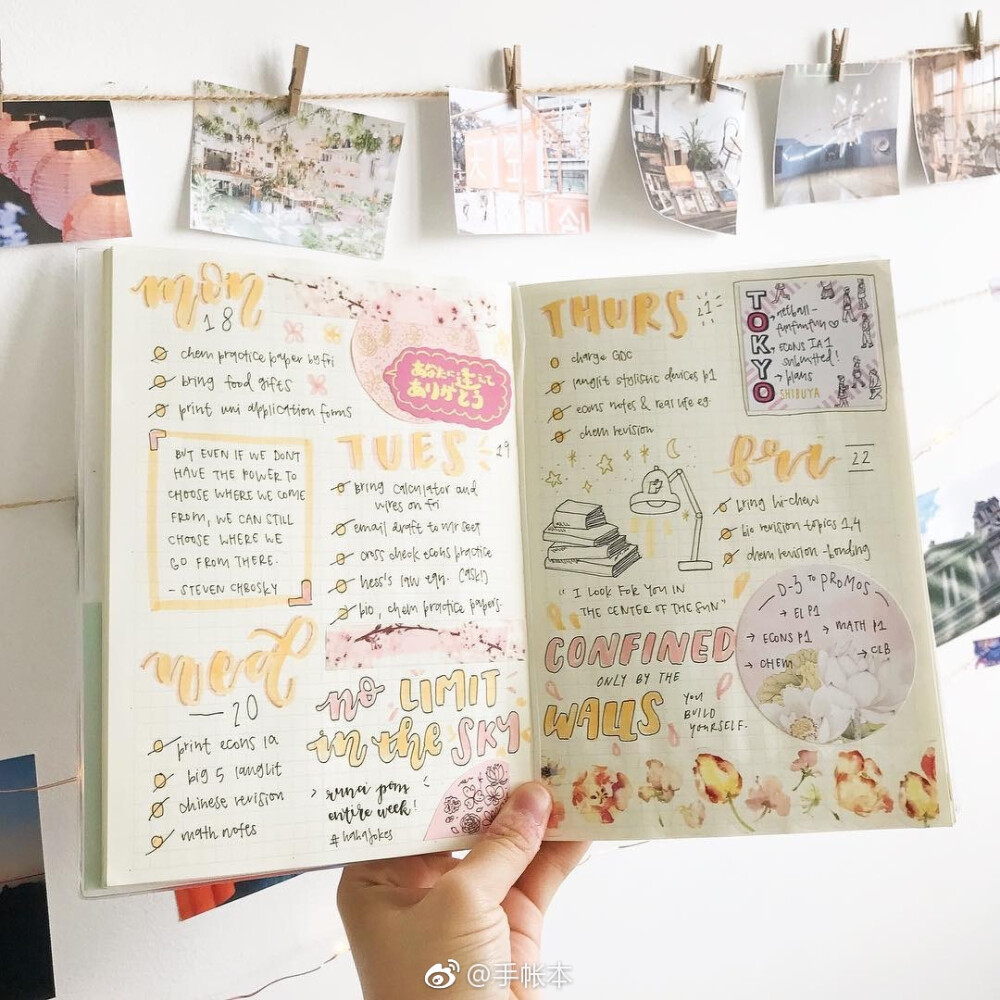 mon
18
chem practice paper by fri
bring food gifts
print uni application forms
あなたに逢えて
ありがとう
BUT EVEN IF WE DON'T
HAVE THE POWER TO
CHOOSE WHERE WE COME
FROM, WE CAN STILL
CHOOSE WHERE WE
GO FROM THERE.
- STEVEN CHBOSKY
TUES
19
bring calculator and
wires on fri
email draft to Mr
cross check econs practice
hess's law eqn. (ask!)
bio, chem practice papers
wed
20
print econs ia
big 5 langlit
chinese revision
math notes
no LIMIT
in the SKY
entire week!
#hahajokes
THURS
21
charge GDC
langlit stylistic devices p1
econs notes & real life eg.
chem revision
TOKYO
netball -
funfunfun
ECONS IA 1
submitted!
plans
SHIBUYA
fri
22
bring hi-chew
bio revision topics 1,4
chem revision - bonding
"I LOOK FOR YOU IN
THE CENTER OF THE SUN"
CONFINED
ONLY BY THE
WALLS
YOU
BUILD
YOURSELF.
D-3 TO PROMOS
→ EL P1
→ ECONS P1
→ MATH P1
→ CHEM
→ CLB
@手帐本